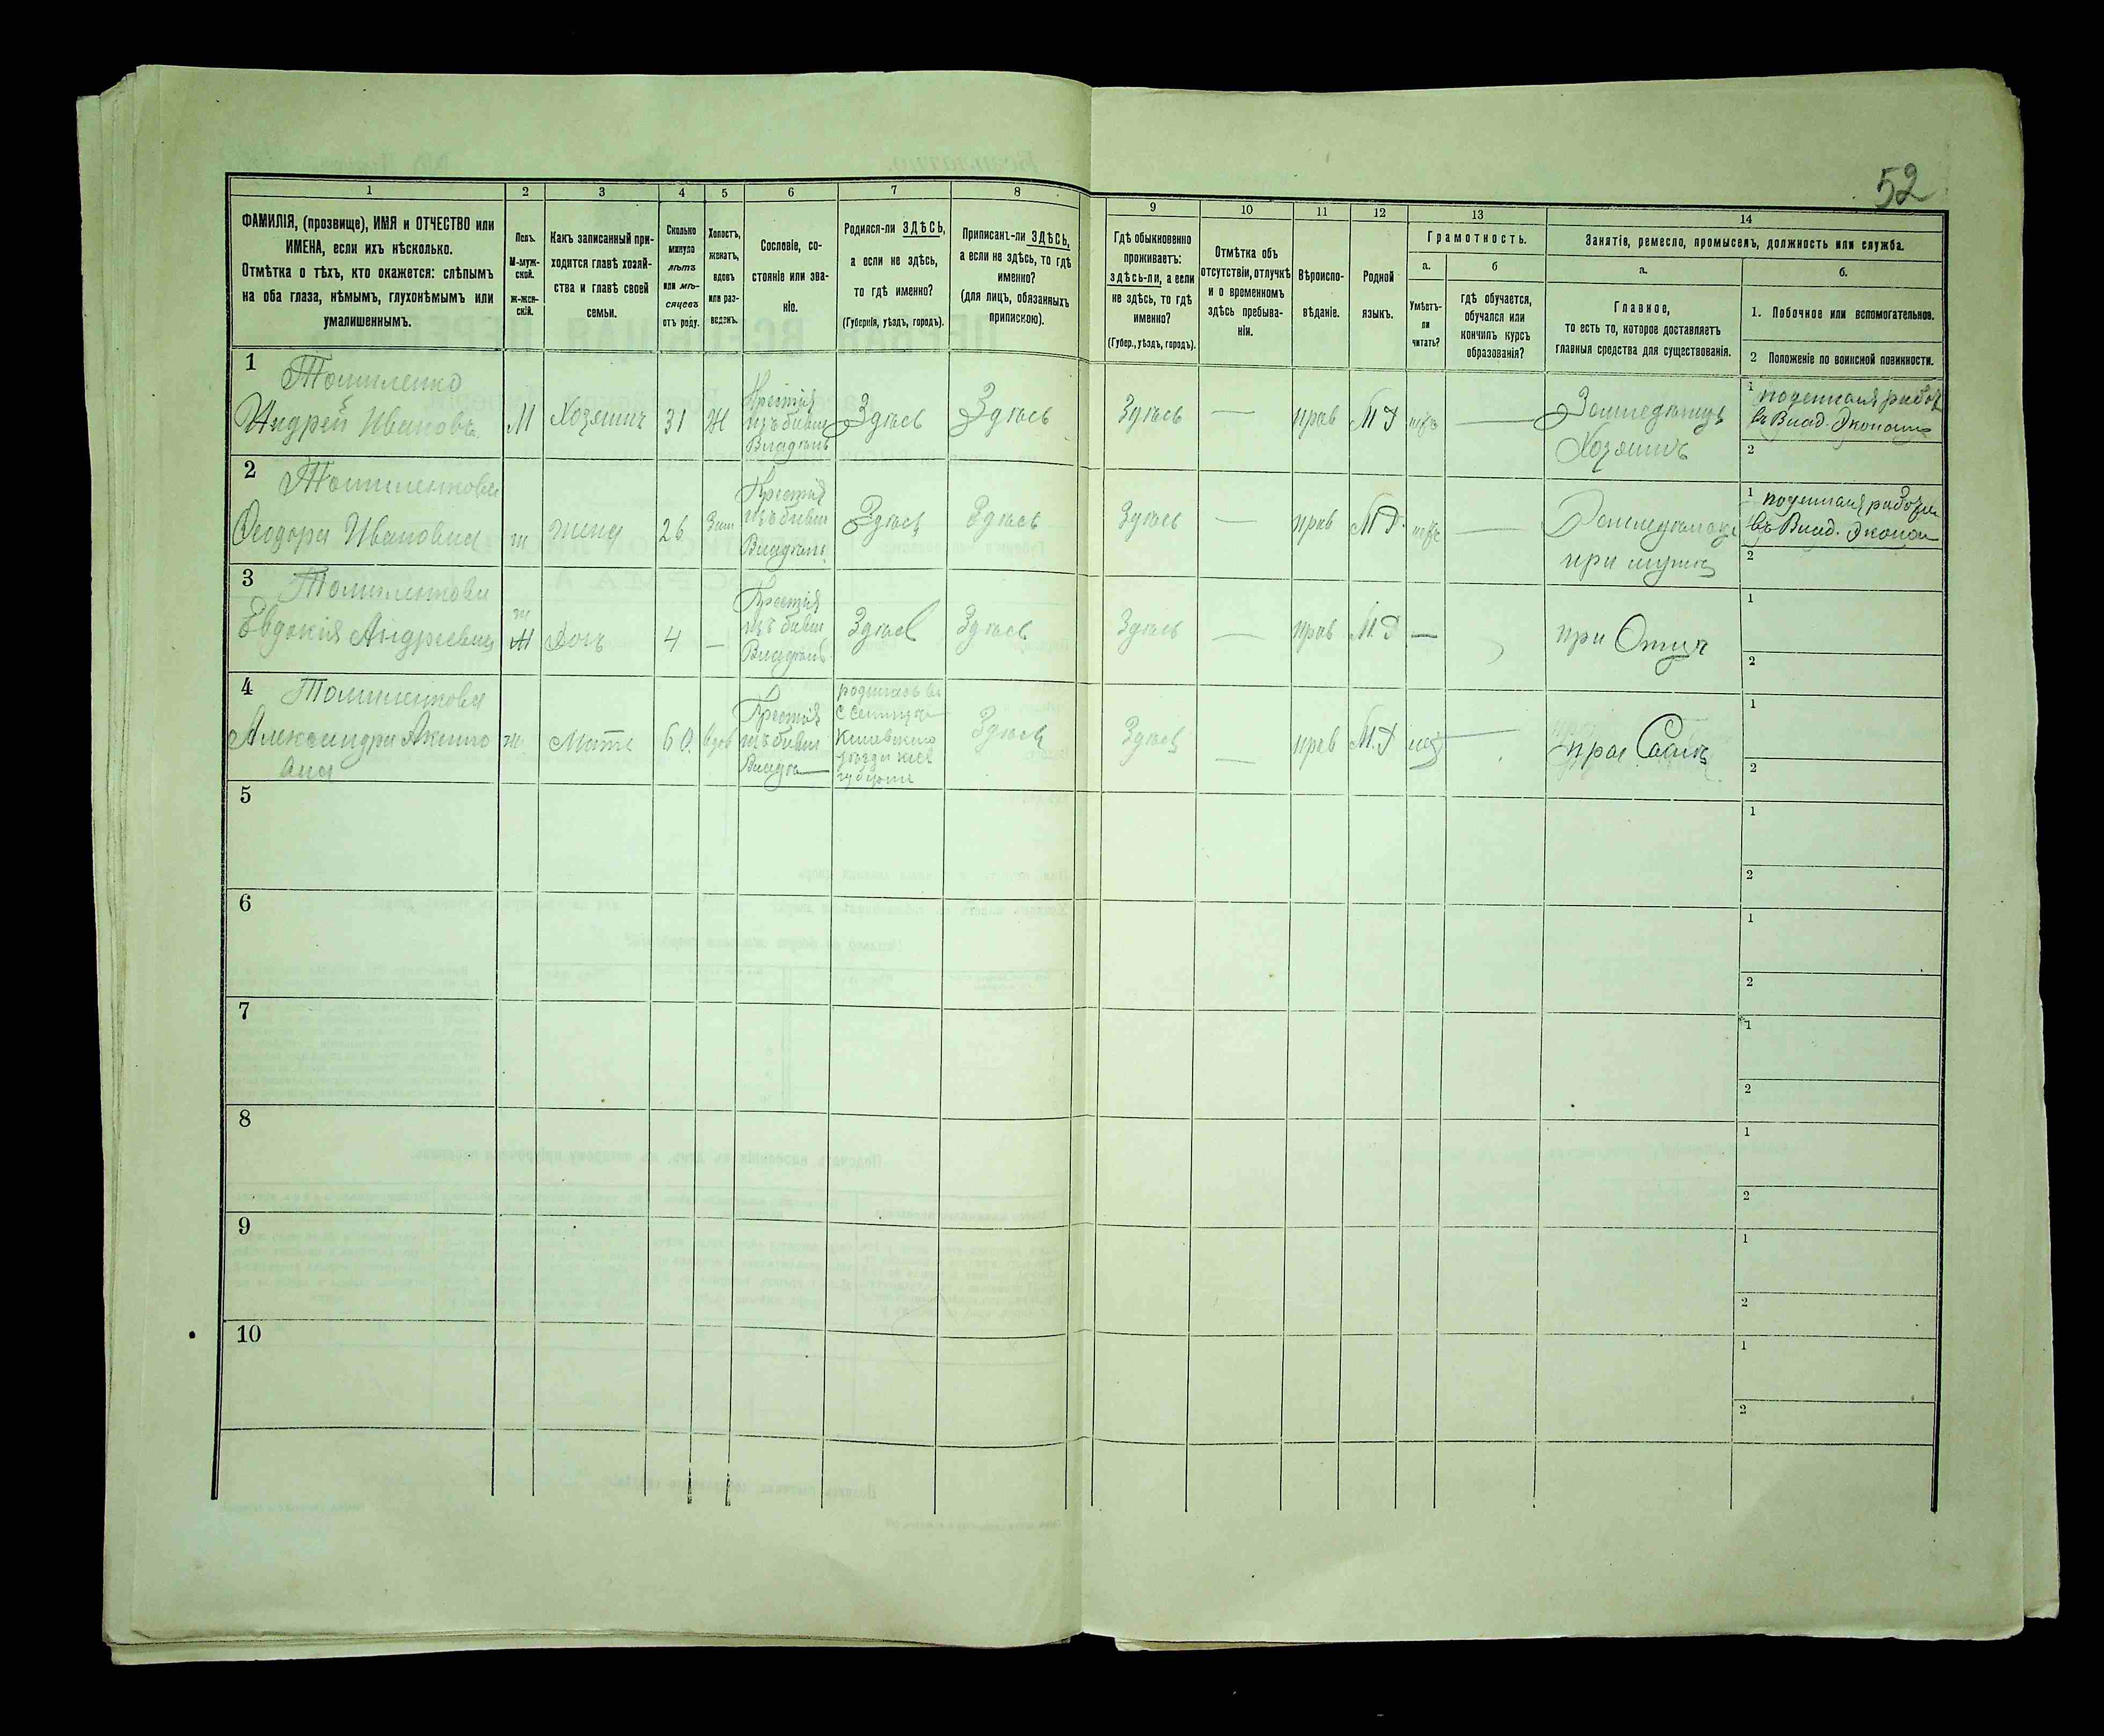 52
1
2
3
4
5
6
7
8
9
10
11
12
13
14
ФАМИЛІЯ, (прозвище), ИМЯ и ОТЧЕСТВО или
ИМЕНА, если ихъ нѣсколько.
Отмѣтка о тѣхъ, кто окажется: слѣпымъ
на оба глаза, нѣмымъ, глухонѣмымъ или
умалишеннымъ.
Полъ.
М-муж-
ской.
ж-жен-
скій.
Какъ записанный при-
ходится главѣ хозяй-
ства и главѣ своей
семьи.
Сколько
минуло
лѣтъ
или мѣ-
сяцевъ
отъ роду.
Холостъ,
женатъ,
вдовъ
или раз-
веденъ.
Сословіе, со-
стояніе или зва-
ніе.
Родился-ли ЗДѢСЬ,
а если не здѣсь,
то гдѣ именно?
(Губернія, уѣздъ, городъ).
Приписанъ-ли ЗДѢСЬ,
а если не здѣсь, то гдѣ
именно?
(для лицъ, обязанныхъ
припискою).
Гдѣ обыкновенно
проживаетъ:
здѣсь-ли, а если
не здѣсь, то гдѣ
именно?
(Губер., уѣздъ, городъ).
Отмѣтка объ
отсутствіи, отлучкѣ
и о временномъ
здѣсь пребыва-
ніи.
Вѣроиспо-
вѣданіе.
Родной
языкъ.
Грамотность.
а.
Умѣетъ-
ли
читать?
б
гдѣ обучается,
обучался или
кончилъ курсъ
образованія?
Занятіе, ремесло, промыселъ, должность или служба.
а.
Главное,
то есть то, которое доставляетъ
главныя средства для существованія.
б.
1. Побочное или вспомогательное.
2 Положеніе по воинской повинности.
1
Томиленко
Андрей Ивановъ
М
Хозяинъ
31
Ж
Здѣсь
Здѣсь
Здѣсь
—
прав
М Р
—
Хозяинъ
1
въ Влад. Экономіи
2
2
Томиленкова
Ѳеодора Ивановна
ж
жена
26
Здѣсь
Здѣсь
Здѣсь
—
прав
М Р.
—
при мужѣ
1
въ Влад. Эконом
2
3
Томиленкова
Евдокія Андреевна
ж
Дочь
4
—
Здѣсь
Здѣсь
Здѣсь
—
прав
М. Р
—
при Отцѣ
1
2
4
Томиленкова
Александра Акимо
вна
ж
Мать
60
вдов
родилась въ
Кіевскаго
уѣзда кіев
губерніи
Здѣсь
Здѣсь
—
прав
М. Р
при Сынѣ
1
2
5
1
2
6
1
2
7
1
2
8
1
2
9
1
2
10
1
2